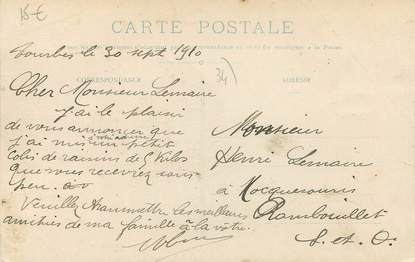 15 €
CARTE POSTALE
Tourbes le 30 sept 1910
34)
CORRESPONDANCE
ADRESSE
Cher Monsieur Lemaire
j'ai le plaisir
de vous annoncer que
j'ai mis un petit
Colis de raisins de 5 kilos
que vous recevrez sous
peu.
Veuillez transmettre les meilleures
amitiés de ma famille à la vôtre.
Monsieur
Henri Lemaire
à Mocquesouris
Rambouillet
S. et O.